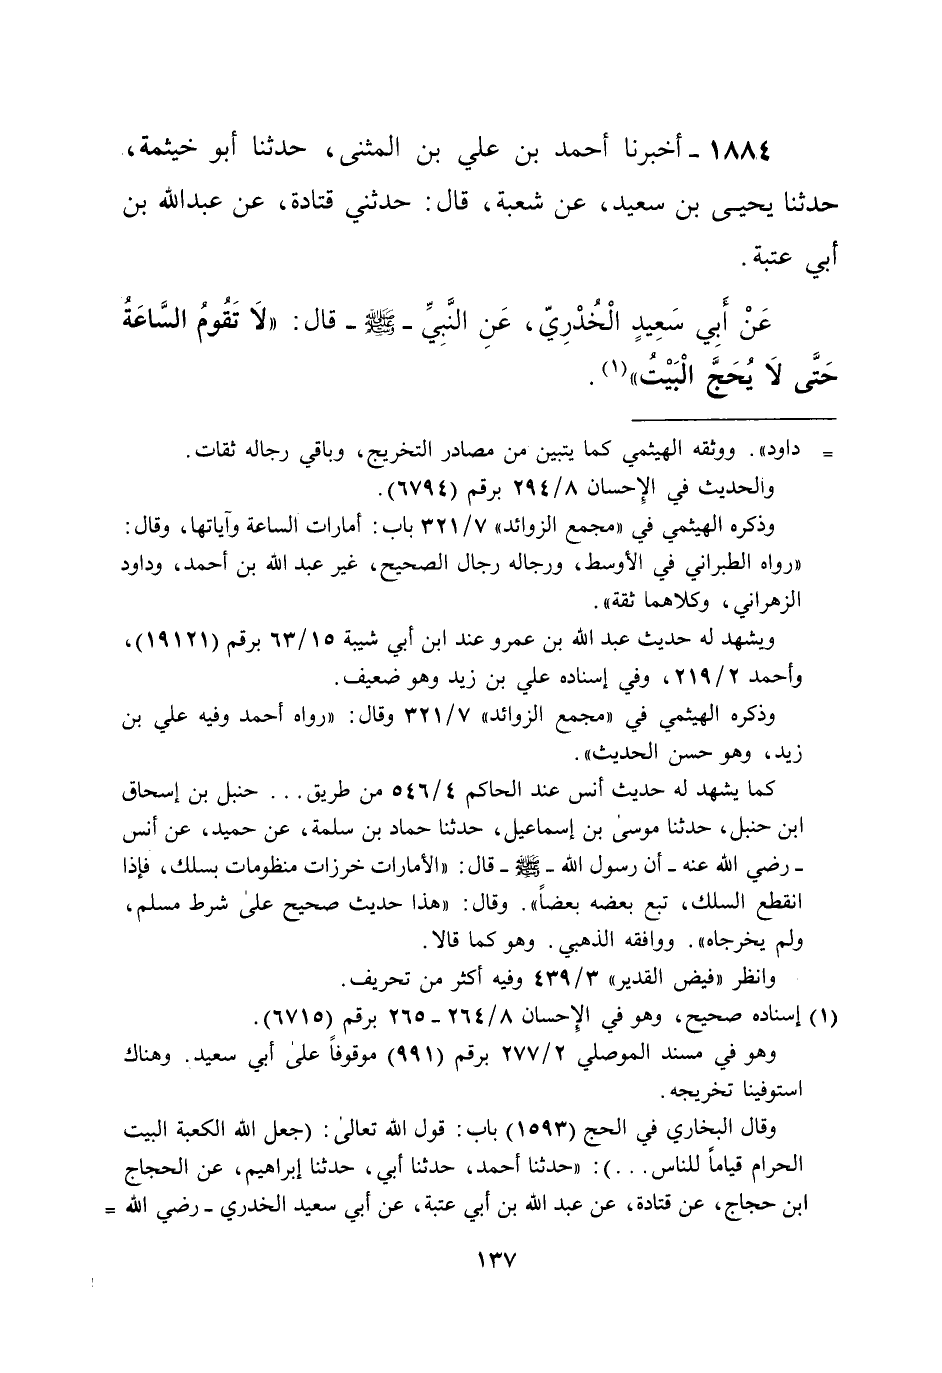 ١٨٨٤ - أخبرنا أحمد بن علي بن المثنى، حدثنا أبو خيثمة،
حدثنا يحيـى بن سعيد، عن شعبة، قال: حدثني قتادة، عن عبدالله بن
أبي عتبة.
عَنْ أَبِي سَعِيدٍ الْخُدْرِيّ، عَنِ النَّبِيِّ - ﷺ - قال: «لَا تَقُومُ السَّاعَةُ
حَتَّى لَا يُحَجَّ الْبَيْتُ»(١).
= داود». ووثقه الهيثمي كما يتبين من مصادر التخريج، وباقي رجاله ثقات.
والحديث في الإحسان ٢٩٤/٨ برقم (٦٧٩٤).
وذكره الهيثمي في «مجمع الزوائد» ٣٢١/٧ باب: أمارات الساعة وآياتها، وقال:
«رواه الطبراني في الأوسط، ورجاله رجال الصحيح، غير عبد الله بن أحمد، وداود
الزهراني، وكلاهما ثقة».
ويشهد له حديث عبد الله بن عمرو عند ابن أبي شيبة ٦٣/١٥ برقم (١٩١٢١)،
وأحمد ٢١٩/٢، وفي إسناده علي بن زيد وهو ضعيف.
وذكره الهيثمي في «مجمع الزوائد» ٣٢١/٧ وقال: «رواه أحمد وفيه علي بن
زيد، وهو حسن الحديث».
كما يشهد له حديث أنس عند الحاكم ٥٤٦/٤ من طريق... حنبل بن إسحاق
ابن حنبل، حدثنا موسىٰ بن إسماعيل، حدثنا حماد بن سلمة، عن حميد، عن أنس
- رضي الله عنه - أن رسول الله - ﷺ - قال: «الأمارات خرزات منظومات بسلك، فإذا
انقطع السلك، تبع بعضه بعضاً». وقال: «هذا حديث صحيح علىٰ شرط مسلم،
ولم يخرجاه». ووافقه الذهبي. وهو كما قالا.
وانظر «فيض القدير» ٤٣٩/٣ وفيه أكثر من تحريف.
(١) إسناده صحيح، وهو في الإحسان ٢٦٤/٨ - ٢٦٥ برقم (٦٧١٥).
وهو في مسند الموصلي ٢٧٧/٢ برقم (٩٩١) موقوفاً علىٰ أبي سعيد. وهناك
استوفينا تخريجه.
وقال البخاري في الحج (١٥٩٣) باب: قول الله تعالىٰ: (جعل الله الكعبة البيت
الحرام قياماً للناس...): «حدثنا أحمد، حدثنا أبي، حدثنا إبراهيم، عن الحجاج
ابن حجاج، عن قتادة، عن عبد الله بن أبي عتبة، عن أبي سعيد الخدري - رضي الله =
١٣٧